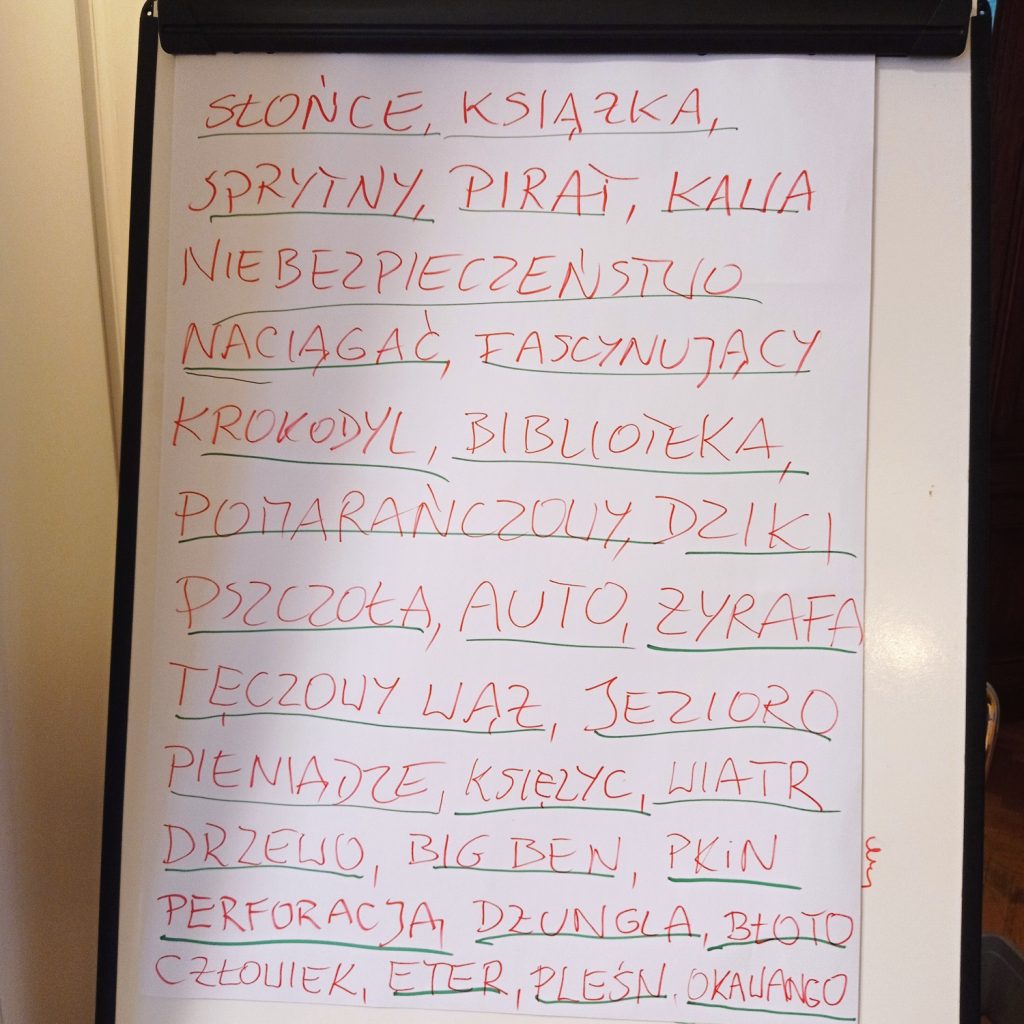 SŁOŃCE, KSIĄŻKA,
SPRYTNY, PIRAT, KAWA
NIEBEZPIECZEŃSTWO
NACIĄGAĆ, FASCYNUJĄCY
KROKODYL, BIBLIOTEKA,
POMARAŃCZOWY, DZIKI
PSZCZOŁA, AUTO, ŻYRAFA
TĘCZOWY WĄŻ, JEZIORO
PIENIĄDZE, KSIĘŻYC, WIATR
DRZEWO, BIG BEN, PKiN
PERFORACJA, DŻUNGLA, BŁOTO
CZŁOWIEK, ETER, PLEŚN, OKAWANGO